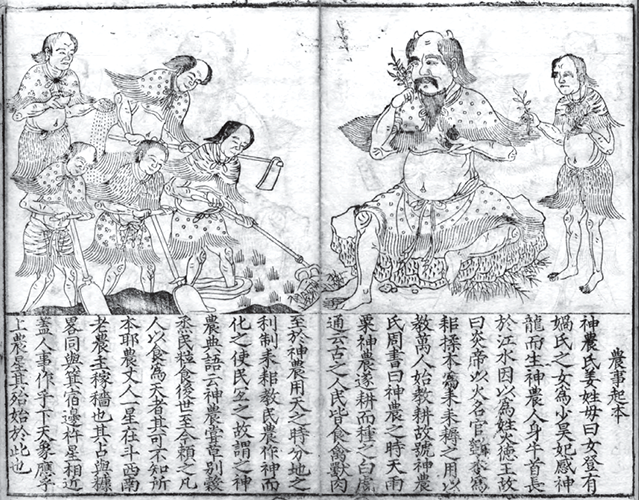 農事起本
神農氏姜姓母曰女登有
媧氏之女為少昊妃感神
龍而生神農人身牛首長
於江水因以為姓火德王故
曰炎帝以火名官斲木為
耜揉木為耒耒耨之用以
教萬人始教耕故號神農
氏周書曰神農之時天雨
粟神農遂耕而種之白虎
通云古之人民皆食禽獸肉
至於神農用天之時分地之
利制耒耜教民農作神而
化之使民宜之故謂之神
農典語云神農嘗草別穀
烝民粒食後世至今賴之凡
人以食為天者其可不知所
本耶農丈人一星在斗西南
老農主稼穡也其占與糠
畧同與箕宿邊杵星相近
葢人事作乎下天象應乎
上農星其殆始於此也